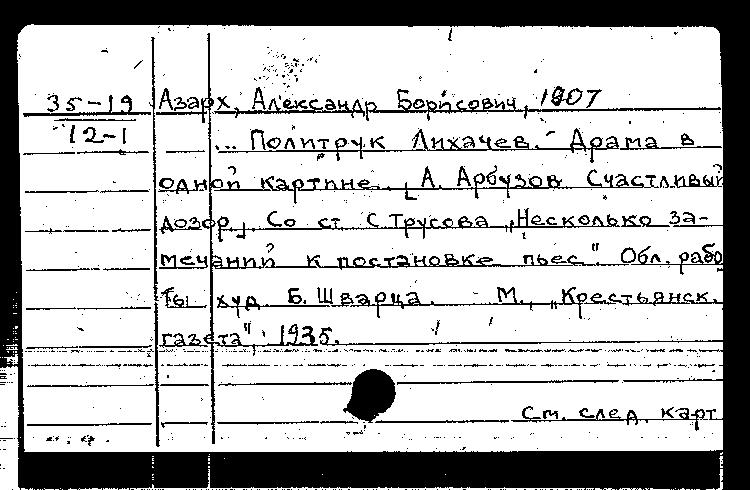 35-19
12-1
Азарх, Александр Борисович, 1907
... Политрук Лихачев. - Драма в
одной картине. [А. Арбузов Счастливый
дозор]. Со ст. С. Трусова „Несколько за-
мечаний к постановке пьес". Обл. рабо
ты худ. Б. Шварца. М., „Крестьянск.
газета", 1935.
См. след. карт